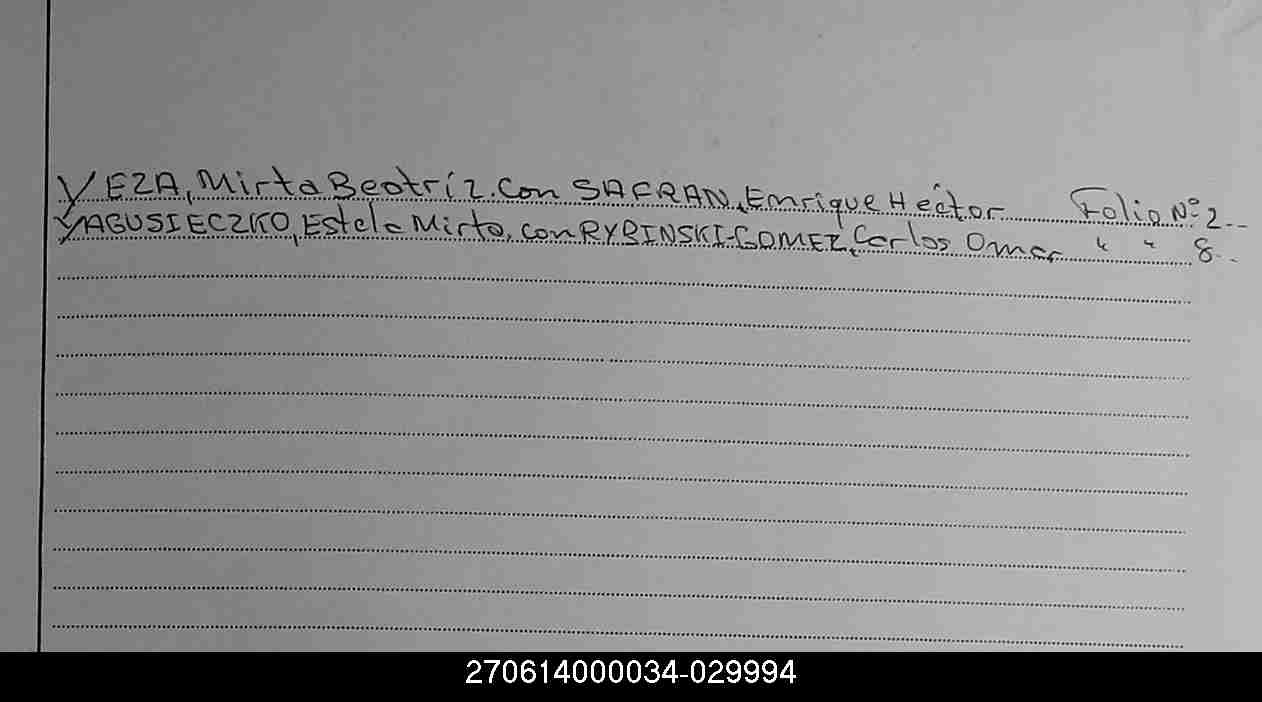 YEZA, Mirta Beatríz. Con SAFRAN, Enrique Héctor Folio Nº 2--
YAGUSIECZKO, Estela Mirta, con RYBINSKI-GOMEZ, Carlos Omar " " 8--
270614000034-029994